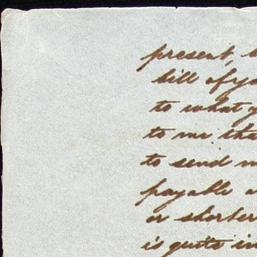 present,
bill of
to what
to me tha
to send m
payable
or shorter
is quite in